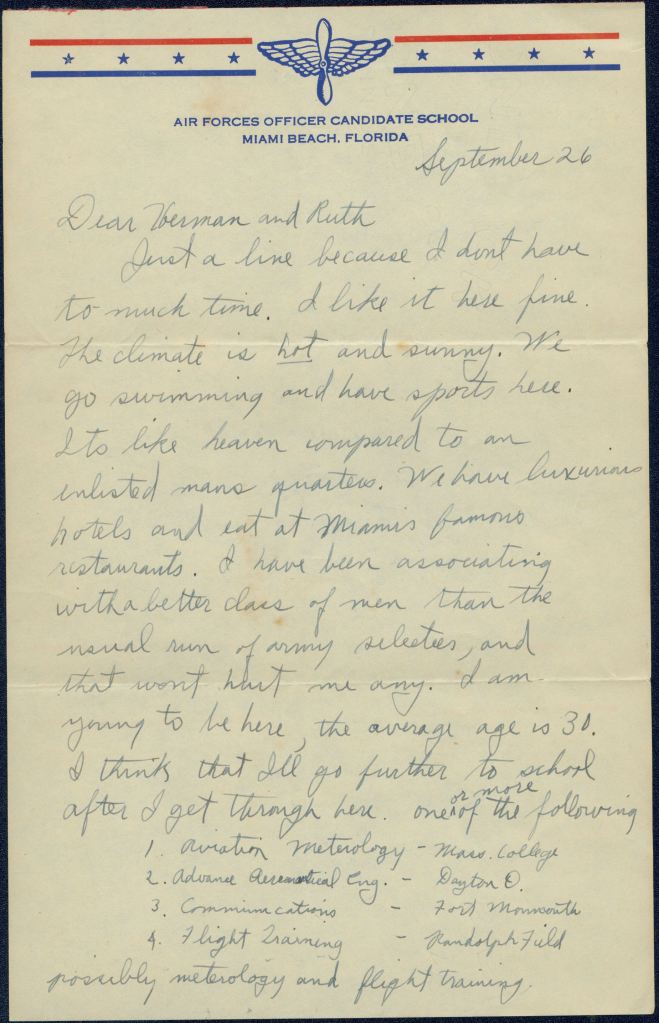 AIR FORCES OFFICER CANDIDATE SCHOOL
MIAMI BEACH, FLORIDA
September 26
Dear Herman and Ruth
Just a line because I dont have
to much time. I like it here fine.
The climate is hot and sunny. We
go swimming and have sports here.
Its like heaven compared to an
enlisted mans quarters. We have luxurious
hotels and eat at Miamis famous
restaurants. I have been associating
with a better class of men than the
usual run of army selectees, and
that wont hurt me any. I am
young to be here, the average age is 30.
I think that I'll go further to school
after I get through here. one or more of the following
1. Aviation Meterology - Mass. College
2. Advance Aeronautical Eng. - Dayton O.
3. Communications - Fort Monmouth
4. Flight Training - Randolph Field
possibly meterology and flight training.